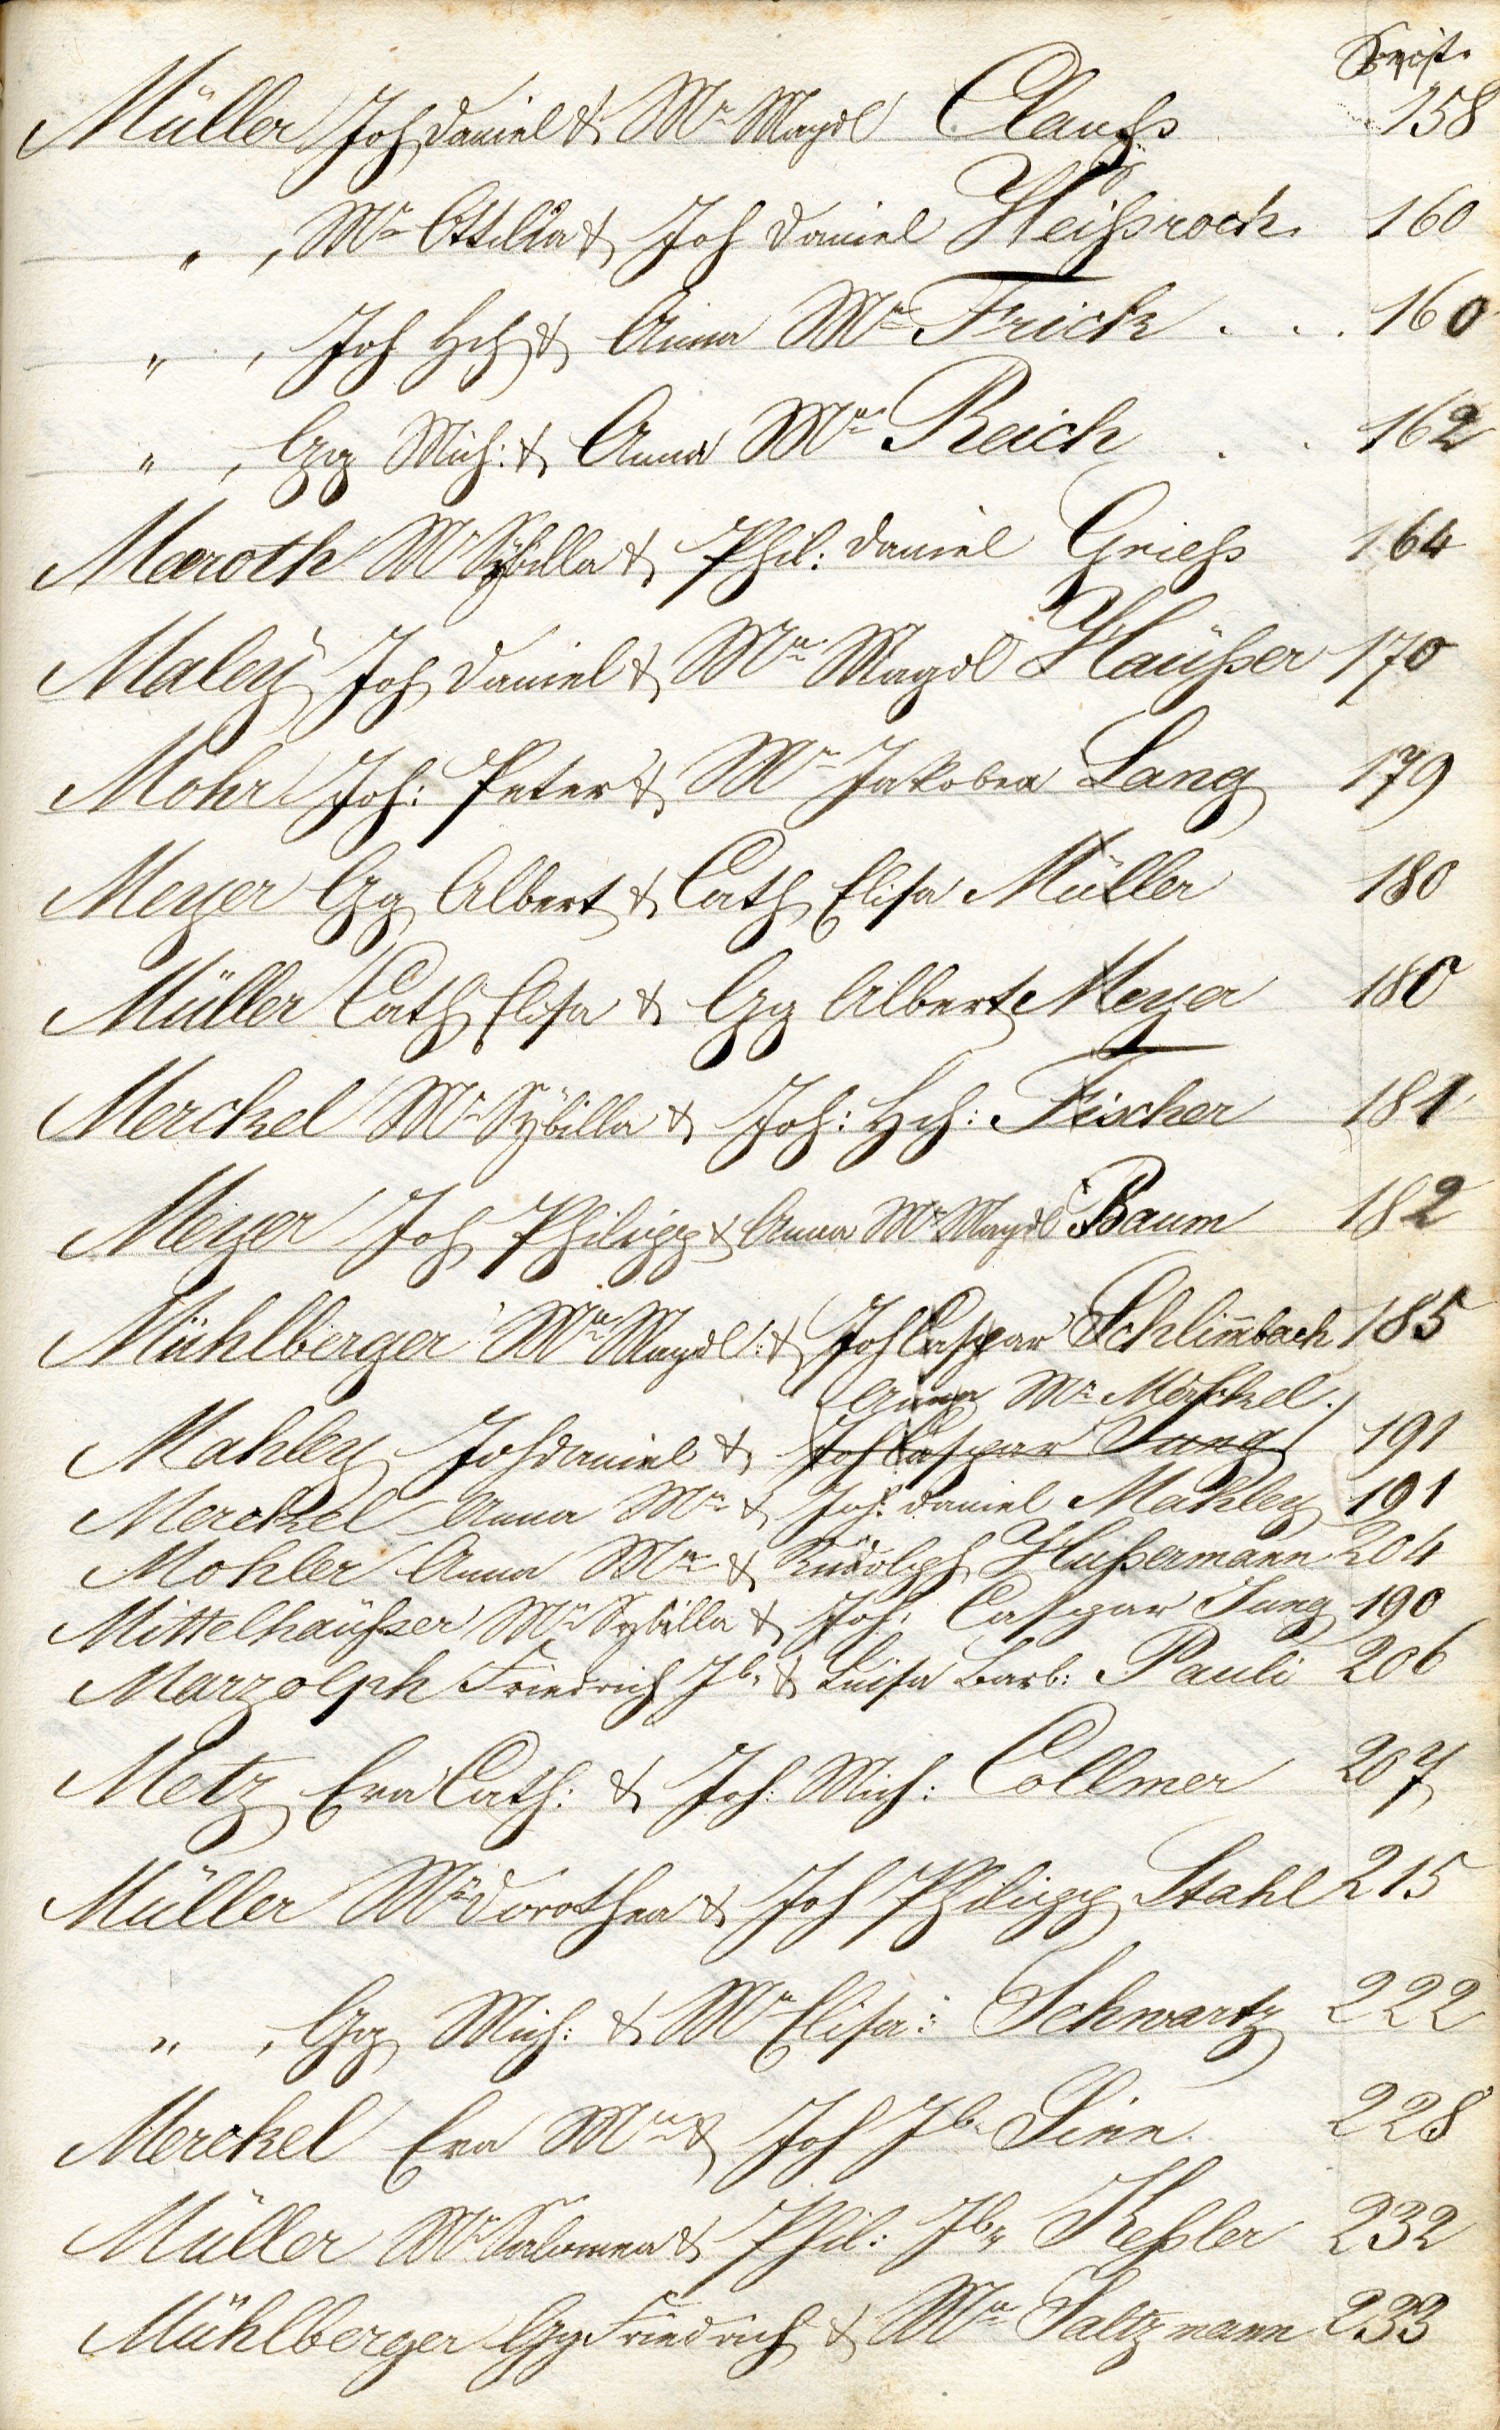 Seite
Müller Joh Daniel & Mr Magdl Clauß 158
" , Mr Ottilia & Joh Daniel Heißrock. 160
" , Joh Hch & Anna Mr Frick . . . 160
" , Gg Mich: & Anna Mr Reich . . 162
Maroth Mr Sÿbilla & Phil: Daniel Grieß 164
Maleÿ Joh Daniel & Mr Magdl Haüßer 170
Mohr Joh: Peter & Mr Jakobea Lang 179
Meyer Gg Albert & Cath Elisa Müller 180
Müller Cath Elisa & Gg Albert Meyer 180
Merckel Mr Sÿbilla & Joh: Hch: Fischer 181
Meyer Joh Philipp & Anna Mr Magdl Baum 182
Mühlberger Mr Magdl: & Joh Caspar Schlim̄bach 185
Anna Mr Merckel.
Mahley Joh Daniel & Joh Caspar Jung 191
Merckel Anna Mr & Joh. Daniel Mahley 191
Mohler Anna Mr & Rudolph Hußermann 204
Mittelhaüßer Mr Sybilla & Joh. Caspar Jung 190
Marzolph Friedrich Jb. & Luisa Barb: Pauli 206
Metz Eva Cath: & Joh. Mich: Collmer 207
Müller Mr Dorothea & Joh Philipp Stahl 215
" , Gg Mich: & Mr Elisa: Schwartz 222
Merckel Eva Mr & Joh Jb. Sinn. 228
Müller Mr Salomea & Phil: Jb. Keßler 232
Mühlberger Gg Friedrich & Mr Saltzmann 233